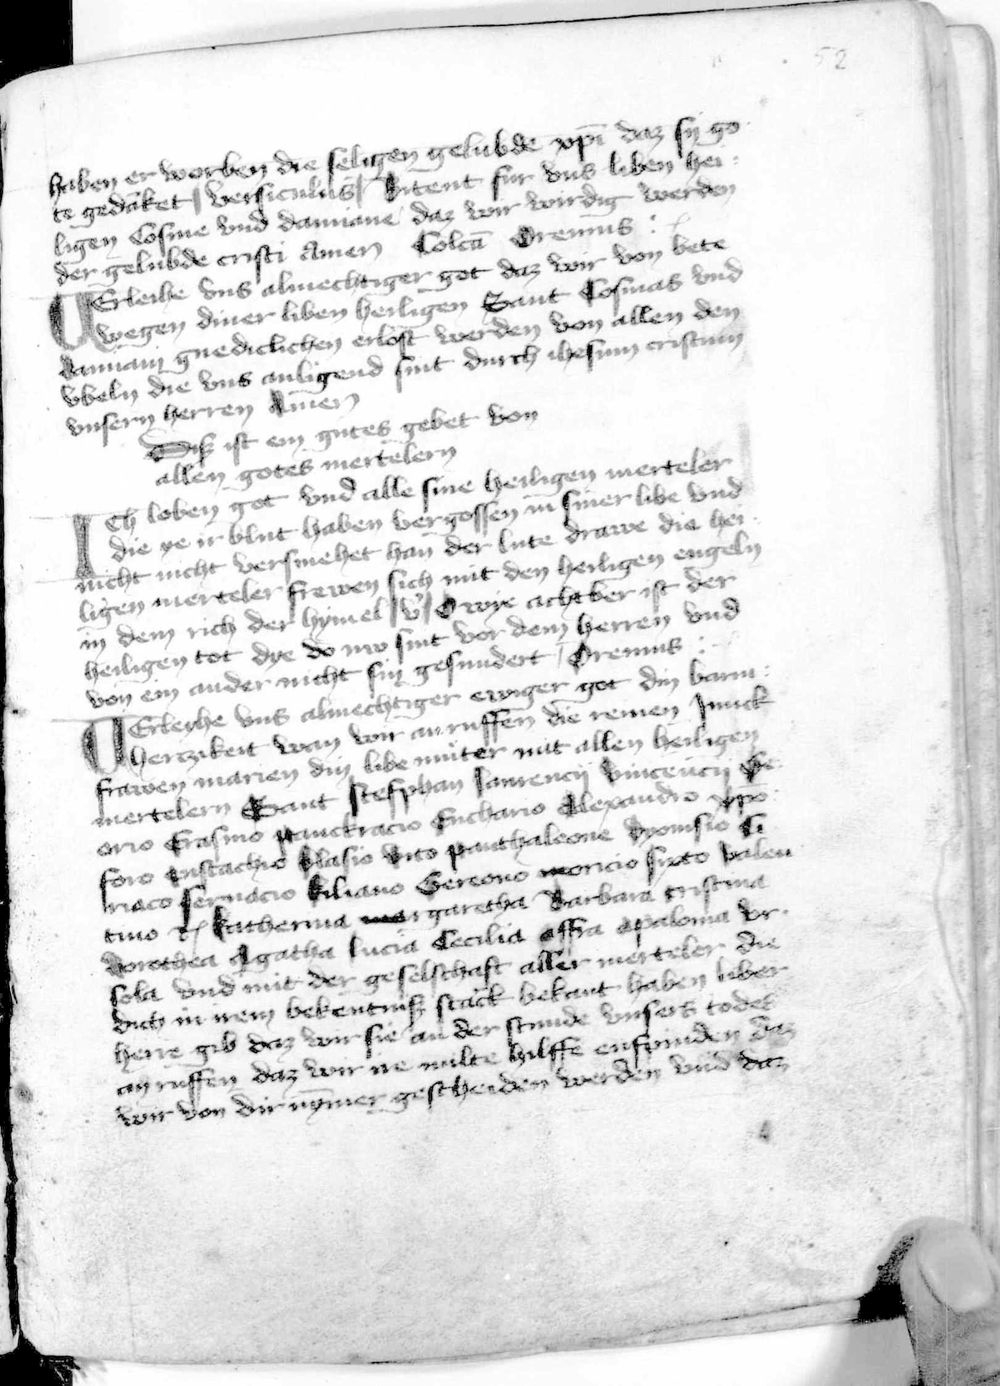 52
haben er worben die seligen gelubde xpi daz sij go
te gedäket versiculus Bitent fur vns liben hei
ligen Cosme vnd damiane daz wir wirdig werden
der gelubde cristi Amen Colcā Oremus
VErleihe vns almechtiger got daz wir von bete
wegen diner liben heiligen Sant Cosmas vnd
damiani gnediclichen erlost werden von allen den
vbeln die vns anligend sint durch ihesum cristum
vnsern herren Amen
Diß ist ein gutes gebet von
allen gotes mertelern
ICh loben got vnd alle sine heiligen merteler
die ye ir blut haben vergossen in siner libe vnd
nicht versmehet han der lute drawe die hei
ligen merteler frewen sich mit den heiligen engeln
in dem rich der hymel v O wye achtber ist der
heiligen tot dye do nw sint vor dem herren vnd
von ein ander nicht sin gesundert Oremus
VErleyhe vns almechtiger ewiger got din barm
herczikeit wan wir an ruffen die reinen Junck
frawen marien din libe müter mit allen heiligen
mertelern Sant steffhan laurencij vincencij Ge
orio Erasmo panckracio Euchario Alexandro xpo
foro eustachio blasio vito panthaleone dyonisio Ci
riaco seruacio kiliano Gereono moricio sixto valen
tino katherina margaretha Barbara cristina
dorothea Agatha lucia Cecilia affra apalonia vr
sola vnd mit der geselschaft aller merteler die
dich in irem bekentniß starck bekant haben liber
herre gib daz wir sie an der stunde vnsers todes
an ruffen daz wir ire milte hilffe enfinden daz
wir von dir nymer gescheiden werden vnd daz